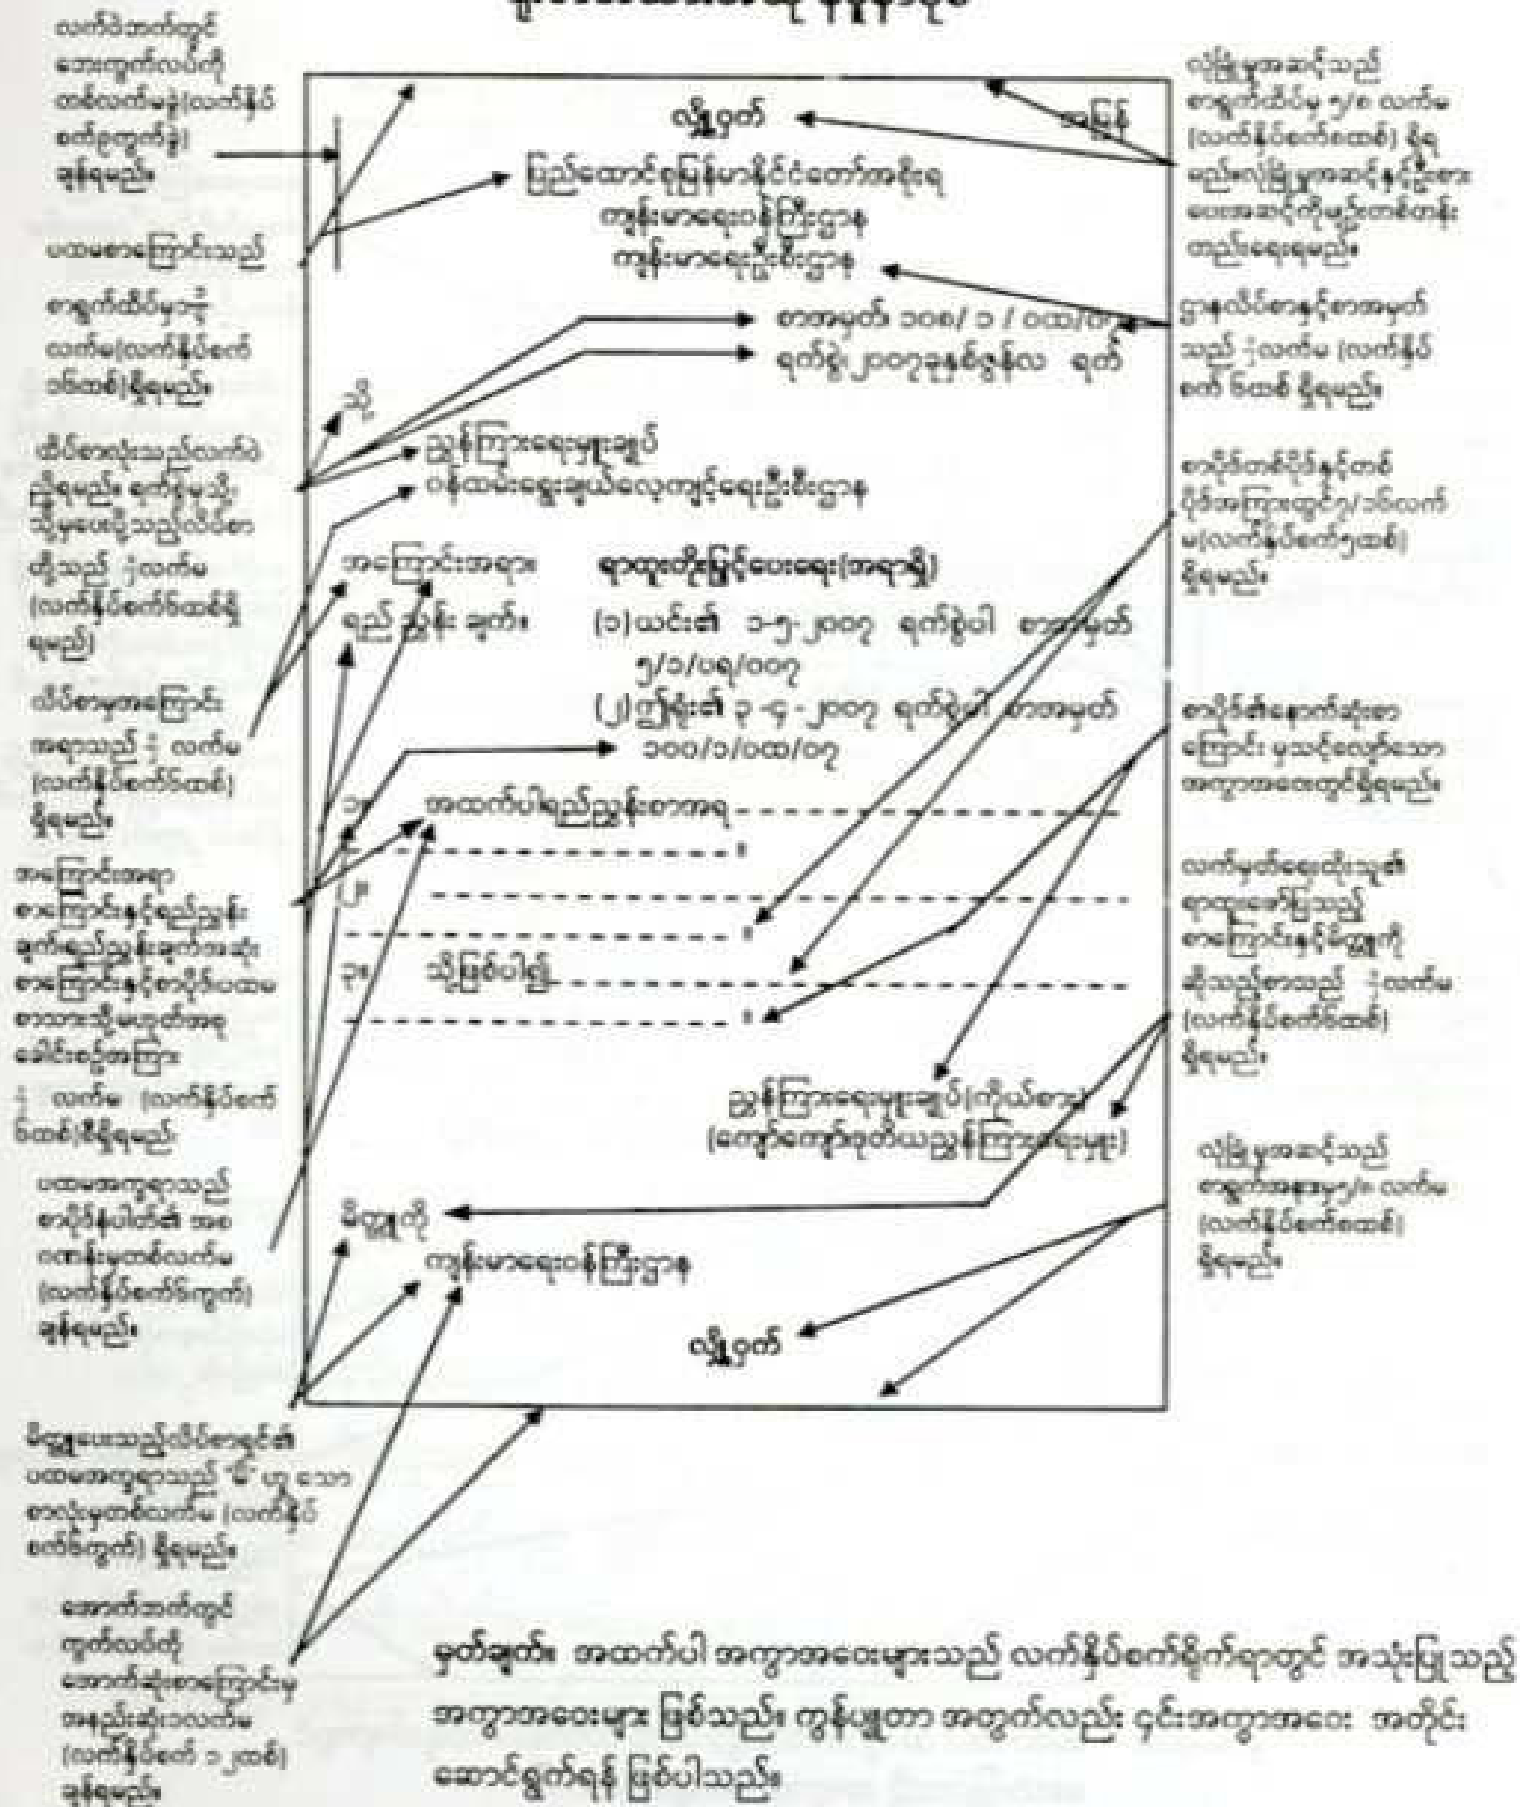 လက်ဝဲဘက်တွင်
ဘေးကွက်လပ်ကို
တစ်လက်မခွဲ(လက်နှိပ်
စက်၉ကွက်ခွဲ)
ချန်ရမည်။
ပထမစာကြောင်းသည်
စာရွက်ထိပ်မှ
လက်မ(လက်နှိပ်စက်
၁၆ထစ်)ရှိရမည်။
ထိပ်စာလုံးသည်လက်ဝဲ
ညှိရမည်။ ရက်စွဲမှသို့၊
သို့မှပေးပို့သည့်လိပ်စာ
တို့သည် လက်မ
(လက်နှိပ်စက်၆ထစ်ရှိ
ရမည်)
လိပ်စာမှအကြောင်း
အရာသည် လက်မ
(လက်နှိပ်စက်၆ထစ်)
ရှိရမည်။
အကြောင်းအရာ
စာကြောင်းနှင့်ရည်ညွှန်း
ချက်၊ရည်ညွှန်းချက်အဆုံး
စာကြောင်းနှင့်စာပိုဒ်ပထမ
စာသားသို့မဟုတ်အစု
ခေါင်းစဉ်အကြား
လက်မ (လက်နှိပ်စက်
၆ထစ်)စီရှိရမည်
ပထမအက္ခရာသည်
စာပိုဒ်နံပါတ်၏ အစ
ဂဏန်းမှတစ်လက်မ
(လက်နှိပ်စက်၆ကွက်)
ချန်ရမည်။
မိတ္တူပေးသည့်လိပ်စာရှင်၏
ပထမအက္ခရာသည် "မိ" ဟူ သော
စာလုံးမှတစ်လက်မ (လက်နှိပ်
စက်၆ကွက်) ရှိရမည်။
အောက်ဘက်တွင်
ကွက်လပ်ကို
အောက်ဆုံးစာကြောင်းမှ
အနည်းဆုံး၁လက်မ
(လက်နှိပ်စက် ၁၂ထစ်)
ချန်ရမည်။
လျှို့ဝှက် အမြန်
ပြည်ထောင်စုမြန်မာနိုင်ငံတော်အစိုးရ
ကျန်းမာရေးဝန်ကြီးဌာန
ကျန်းမာရေးဦးစီးဌာန
စာအမှတ်၊ ၁၀၈/ ၁ / ၀ထ/၀၇
ရက်စွဲ၊၂၀၀၇ခုနှစ်ဇွန်လ ရက်
သို့
ညွှန်ကြားရေးမှူးချုပ်
ဝန်ထမ်းရွေးချယ်လေ့ကျင့်ရေးဦးစီးဌာန
အကြောင်းအရာ။ ရာထူးတိုးမြှင့်ပေးရေး(အရာရှိ)
ရည် ညွှန်း ချက်။ (၁)ယင်း၏ ၁-၅-၂၀၀၇ ရက်စွဲပါ စာအမှတ်
၅/၁/ပရ/၀၀၇
(၂)ဤရုံး၏ ၃ -၄ -၂၀၀၇ ရက်စွဲပါ စာအမှတ်
၁၀၀/၁/၀ထ/၀၇
၁။ အထက်ပါရည်ညွှန်းစာအရ
။
၂။
။
၃။ သို့ဖြစ်ပါ၍
။
ညွှန်ကြားရေးမှူးချုပ်(ကိုယ်စား)
(ကျော်ကျော်ဒုတိယညွှန်ကြားရေးမှူး)
မိတ္တူကို
ကျန်းမာရေးဝန်ကြီးဌာန
လျှို့ဝှက်
လုံခြုံမှုအဆင့်သည်
စာရွက်ထိပ်မှ ၅/၈ လက်မ
(လက်နှိပ်စက်စထစ်) ရှိရ
မည်။လုံခြုံမှုအဆင့်နှင့်ဦးစား
ပေးအဆင့်ကိုမျဉ်းတစ်တန်း
တည်းရေးရမည်။
ဌာနလိပ်စာနှင့်စာအမှတ်
သည် လက်မ (လက်နှိပ်
စက် ၆ထစ် ရှိရမည်။
စာပိုဒ်တစ်ပိုဒ်နှင့်တစ်
ပိုဒ်အကြားတွင်၇/၁၆လက်
မ(လက်နှိပ်စက်၅ထစ်)
ရှိရမည်။
စာပိုဒ်၏နောက်ဆုံးစာ
ကြောင်း မှသင့်လျော်သော
အကွာအဝေးတွင်ရှိရမည်။
လက်မှတ်ရေးထိုးသူ၏
ရာထူးဖော်ပြသည့်
စာကြောင်းနှင့်မိတ္တူကို
ဆိုသည့်စာသည် လက်မ
(လက်နှိပ်စက်၆ထစ်)
ရှိရမည်။
လုံခြုံမှုအဆင့်သည်
စာရွက်အနားမှ၅/၈ လက်မ
(လက်နှိပ်စက်စထစ်)
ရှိရမည်။
မှတ်ချက်။ အထက်ပါ အကွာအဝေးများသည် လက်နှိပ်စက်ရိုက်ရာတွင် အသုံးပြုသည့်
အကွာအဝေးများ ဖြစ်သည်။ ကွန်ပျူတာ အတွက်လည်း ၎င်းအကွာအဝေး အတိုင်း
ဆောင်ရွက်ရန် ဖြစ်ပါသည်။